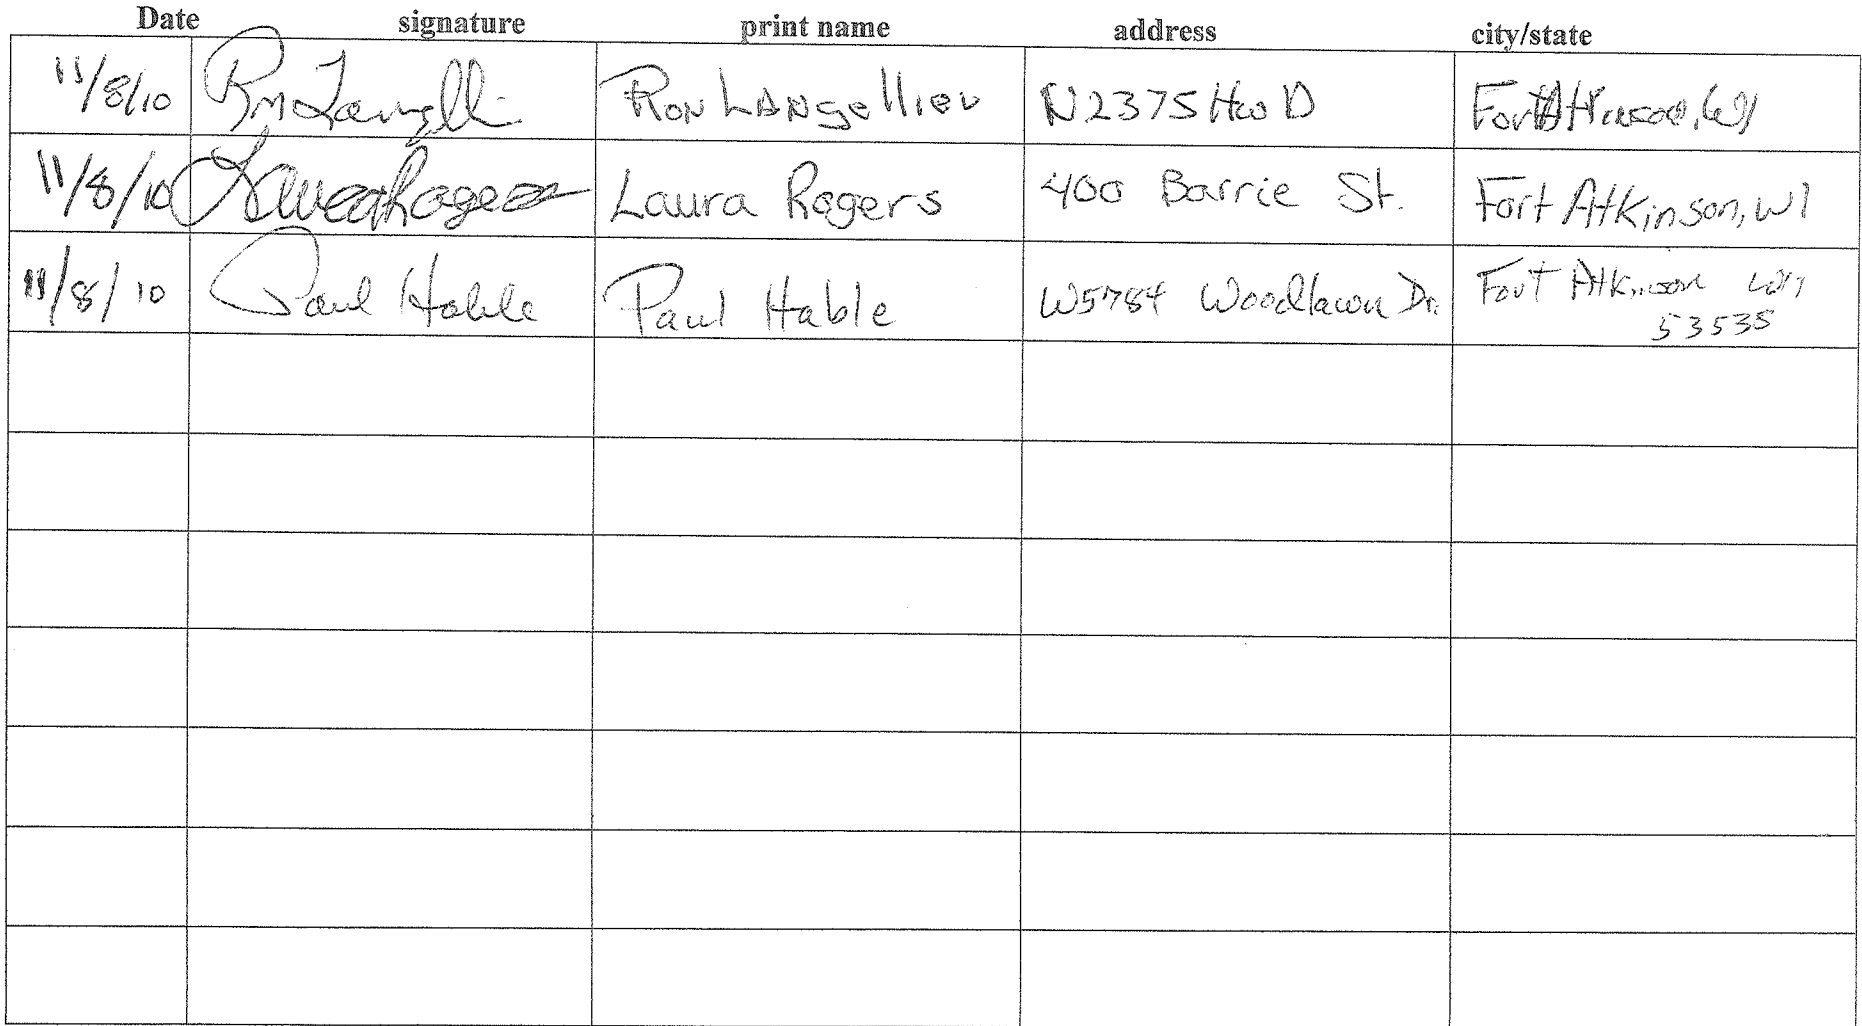 Date signature print name address city/state
11/8/10 Ron LANgellier N2375 Hwy D Fort Atkinson, WI
11/8/10 Laura Rogers Laura Rogers 400 Barrie St. Fort Atkinson, WI
11/8/10 Paul Hable Paul Hable W5784 Woodlawn Dr. Fort Atkinson WI
53535